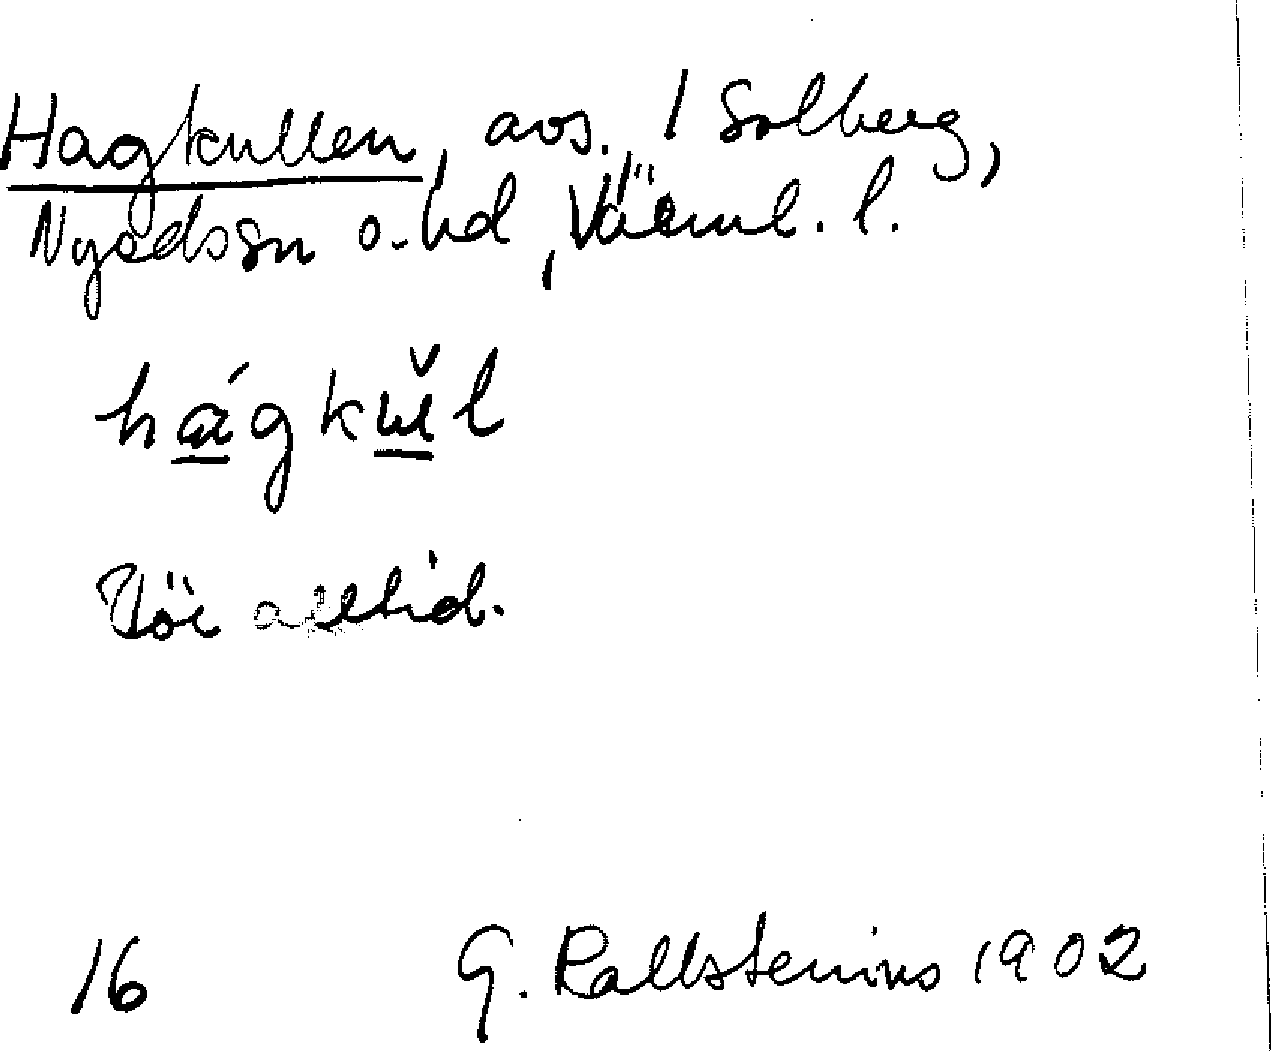 Hagkullen, avs. / Solberg,
Nyedssn o. hd, Värml. l.
hágkŭl
För alltid.
16 G. Kallstenius 1902